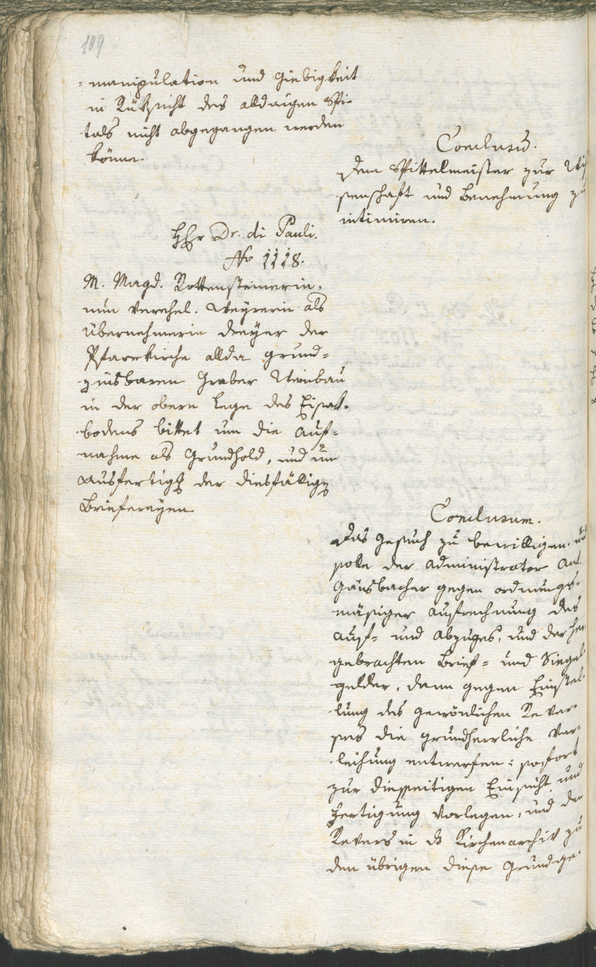 199
-manipulation und Giebigkeit
in Rüksicht des alldaigen Spi-
tals nicht abgegangen werden
könne.
Conclusum.
Dem Spittelmeister zur Wis-
senschaft und Benehmung zu
intimiren.
Hhr Dr. di Pauli.
No 1118.
M. Magd. Rottensteinerin,
nun verehel. Mayrerin als
Übernehmerin dreyer der
Pfarrkirche allda grund-
zinsbaren Graber Weinbau
in der obern Lage des Eisak-
bodens bittet um die Auf-
nahme als Grundhold, und um
Ausfertigg der diesfälligen
Briefereyen.
Conclusum.
Das Gesuch zu bewilligen, und
solle der Administrator Ant.
Gänsbacher gegen ordnungs-
mäsiger Aufrechnung des
Auf- und Abzuges, und der her-
gebrachten Brief- und Siegel-
gelder, dann gegen Einstel-
lung des gewönlichen Rever-
ses die grundherrliche Ver-
leihung entwerfen: sofort
zur diesseitigen Einsicht und
Fertigung vorlegen, und den
Revers in das Kirchenarchiv zu
den übrigen diese Grundge-